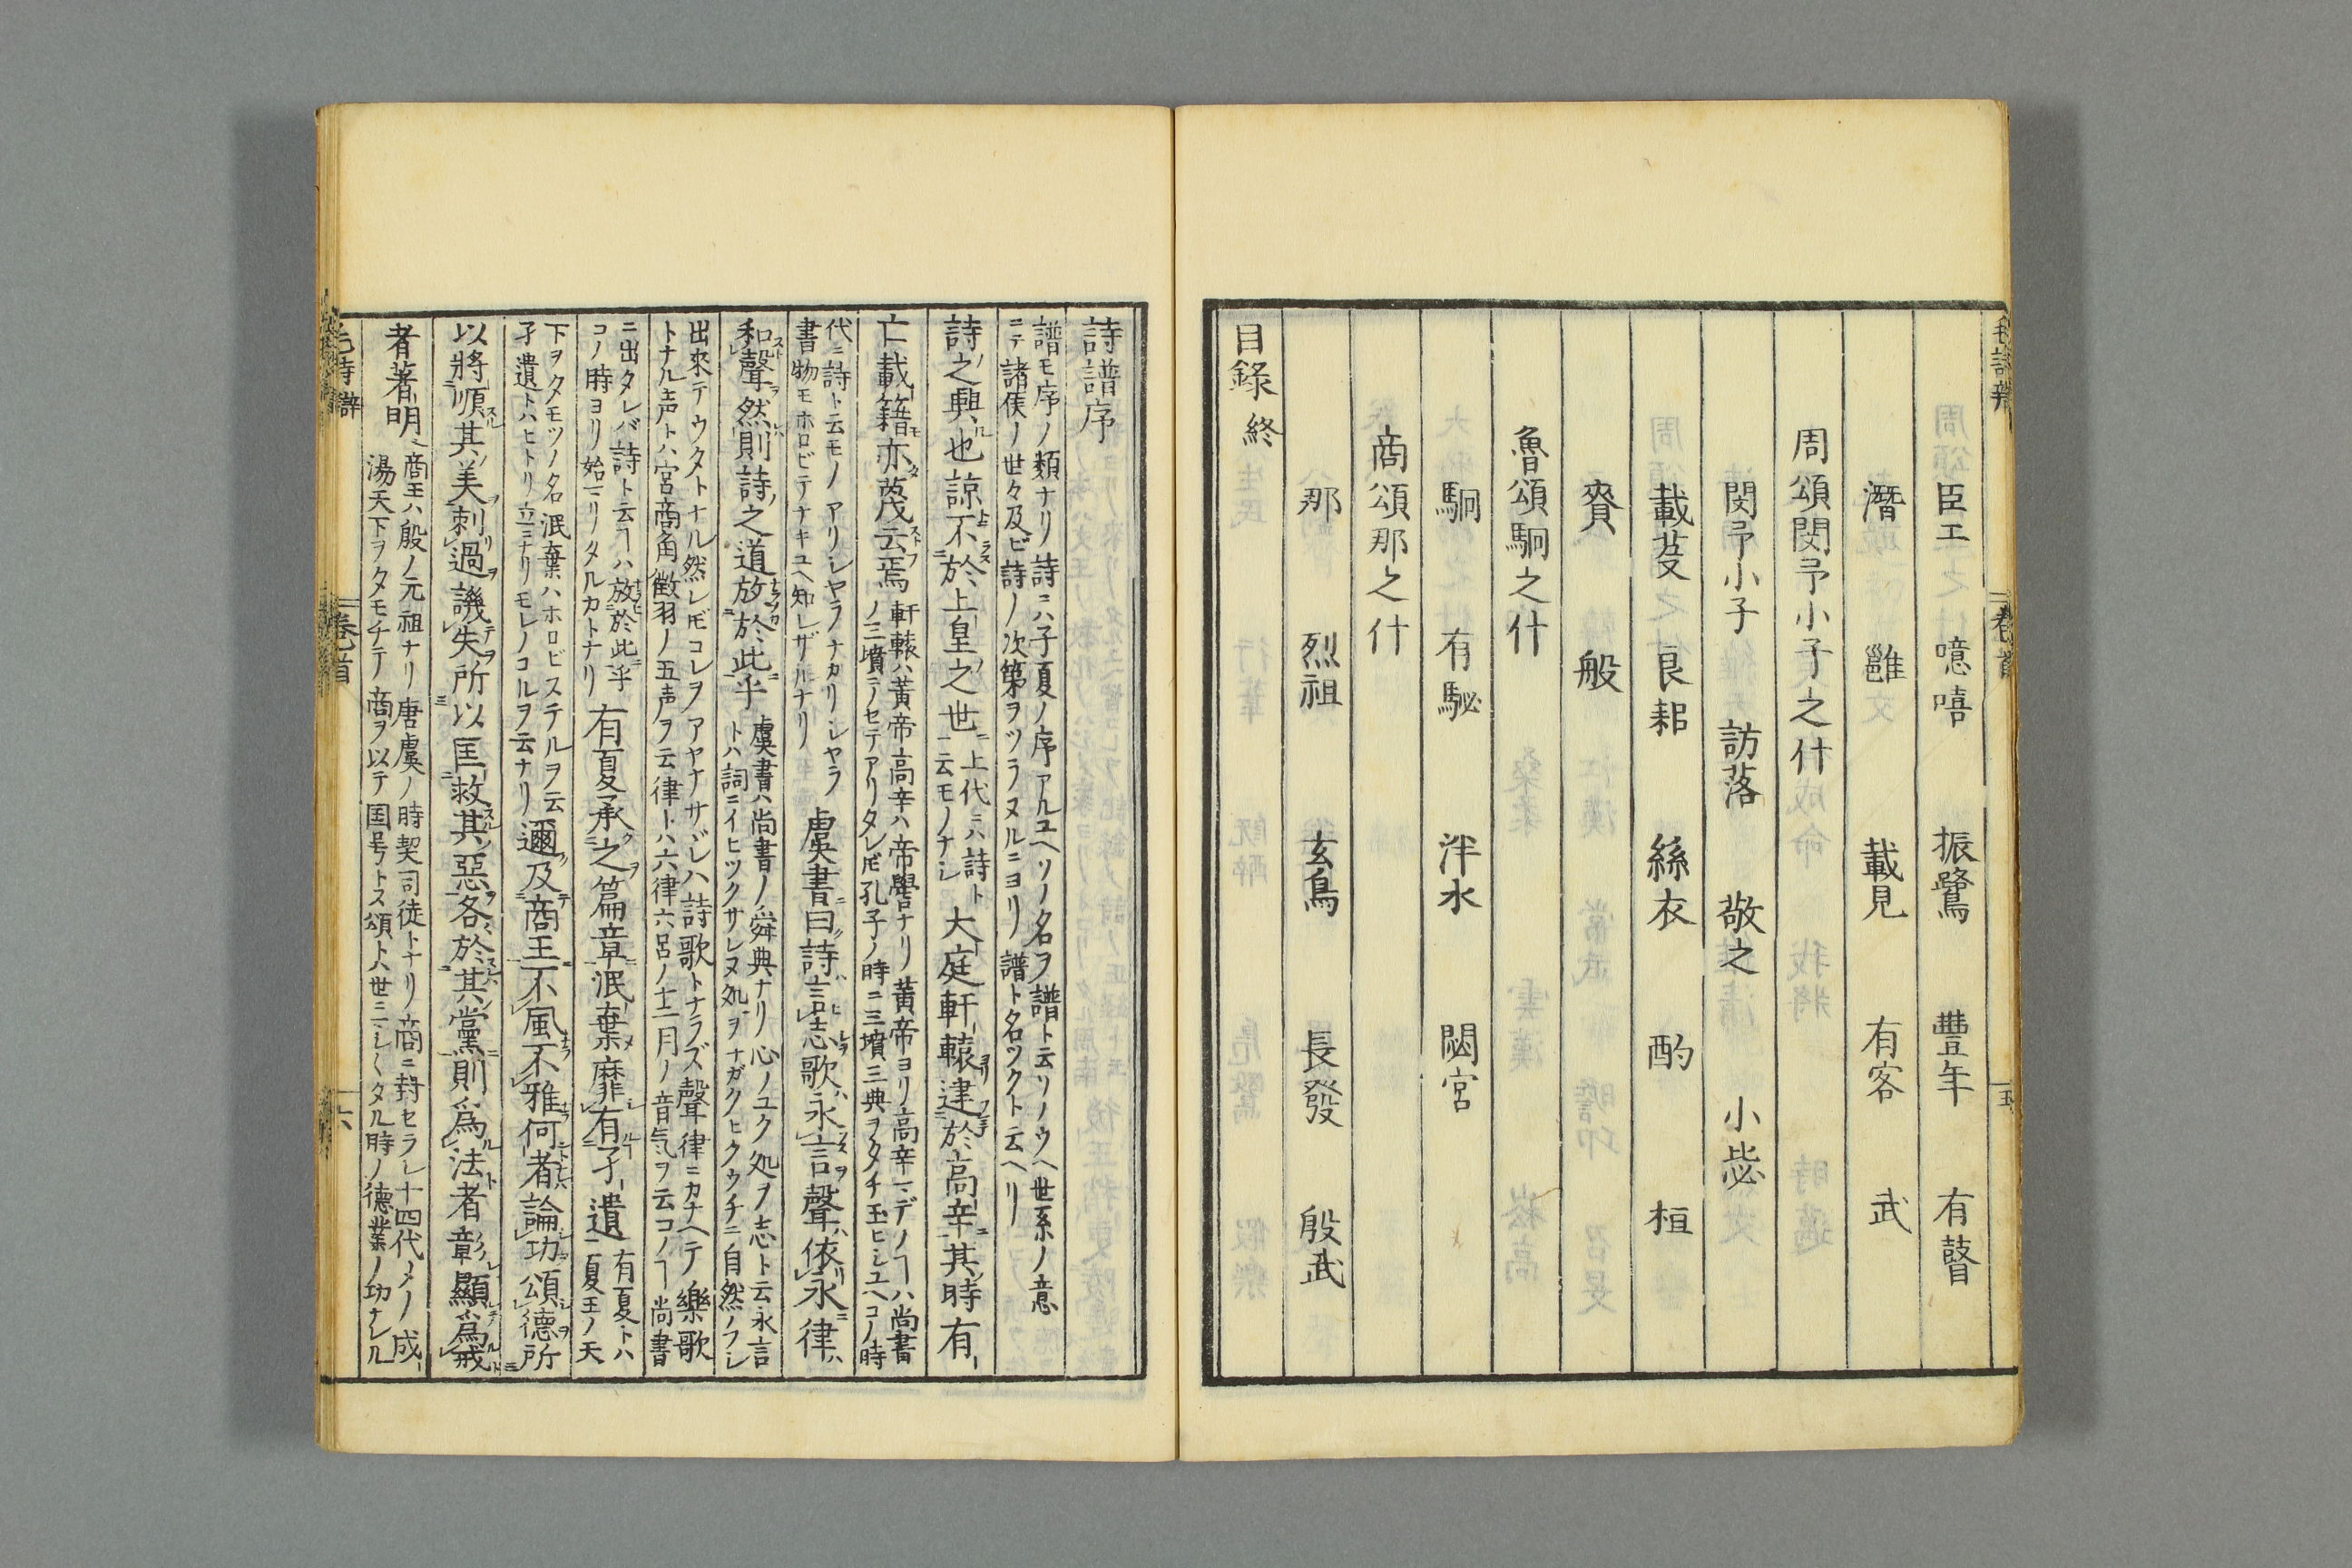 毛詩辨
卷首
五
臣工　噫嘻　振鷺　豐年　有瞽
潛　雝　載見　有客　武
周頌閔予小子之什
閔予小子　訪落　敬之　小毖
載芟　良耜　絲衣　酌　桓
賚　般
魯頌駉之什
駉　有駜　泮水　閟宮
商頌那之什
那　烈祖　玄鳥　長發　殷武
目録終
詩譜序
譜モ序ノ類ナリ詩ニハ子夏ノ序アルユヘソノ名ヲ譜ト云リノウヘ世系ノ意
ニテ諸侯ノ世々及ビ詩ノ次第ヲツラヌルニヨリ譜ト名ツクト云ヘリ
詩之興也諒不於上皇之世
上代ニハ詩ト
云モノナシ
大庭軒轅逮於高辛其時有
亡載籍亦蔑云焉
軒轅ハ黃帝高辛ハ帝嚳ナリ黃帝ヨリ高辛マデノヿハ尚書
ノ三墳ニノセテアリタレ𪜈孔子ノ時ニ三墳三典ヲタチ玉ヒシユヘコノ時
代ニ詩ト云モノアリシヤラナカリシヤラ
書物モホロビテナキユヘ知レザルナリ
虞書曰詩言志歌永言聲依永律
和聲然則詩之道放於此乎
虞書ハ尚書ノ舜典ナリ心ノユク処ヲ志ト云永言
トハ詞ニイヒツクサレヌ処ヲナガクヒクウチニ自然ノフシ
出來テウタトナル然レ𪜈コレヲアヤナサヾレハ詩歌トナラズ聲律ニカナヘテ樂歌
トナル声トハ宮商角徵羽ノ五声ヲ云律トハ六律六呂ノ十二月ノ音気ヲ云コノヿ尚書
ニ出タレバ詩ト云ヿハ放於此乎
コノ時ヨリ始マリタルカトナリ
有夏承之篇章泯棄靡有孑遺
有夏トハ
夏王ノ天
下ヲタモツノ名泯棄ハホロビステルヲ云
孑遺トハヒトリ立ナリモレノコルヲ云ナリ
邇及商王不風不雅何者論功頌德所
以將順其美刺過譏失所以匡救其惡各於其黨則爲法者彰顯爲戒
者著明
商王ハ殷ノ元祖ナリ唐虞ノ時契司徒トナリ商ニ封セラレ十四代メノ成
湯天下ヲタモチテ商ヲ以テ国号トス頌トハ世ニシ〱タル時ノ德業ノ功ナレル
毛詩辨
卷首
六